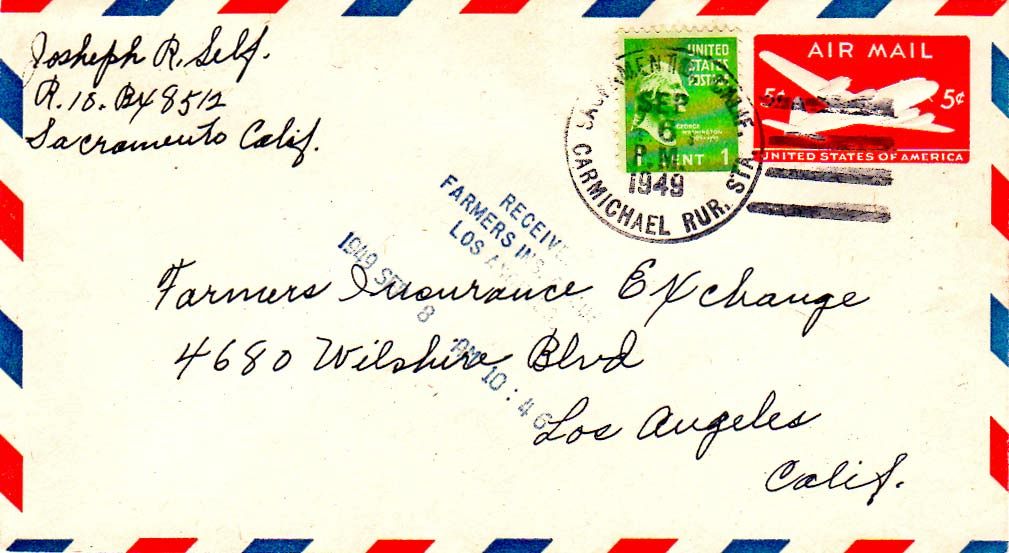 Josheph R. Self.
R. 10. Bx 8512
Sacramento Calif.
UNITED
STATES
POSTAGE
GEORGE
WASHINGTON
CENT 1
AIR MAIL
5¢ 5¢
UNITED STATES OF AMERICA
SACRAMENTO, CALIF.
SEP
6
P.M.
1949
CARMICHAEL RUR. STA.
RECEIVED
FARMERS INS.
LOS ANGELES
1949 SEP 8 AM 10:46
Farmers Insurance Exchange
4680 Wilshire Blvd
Los Angeles
Calif.